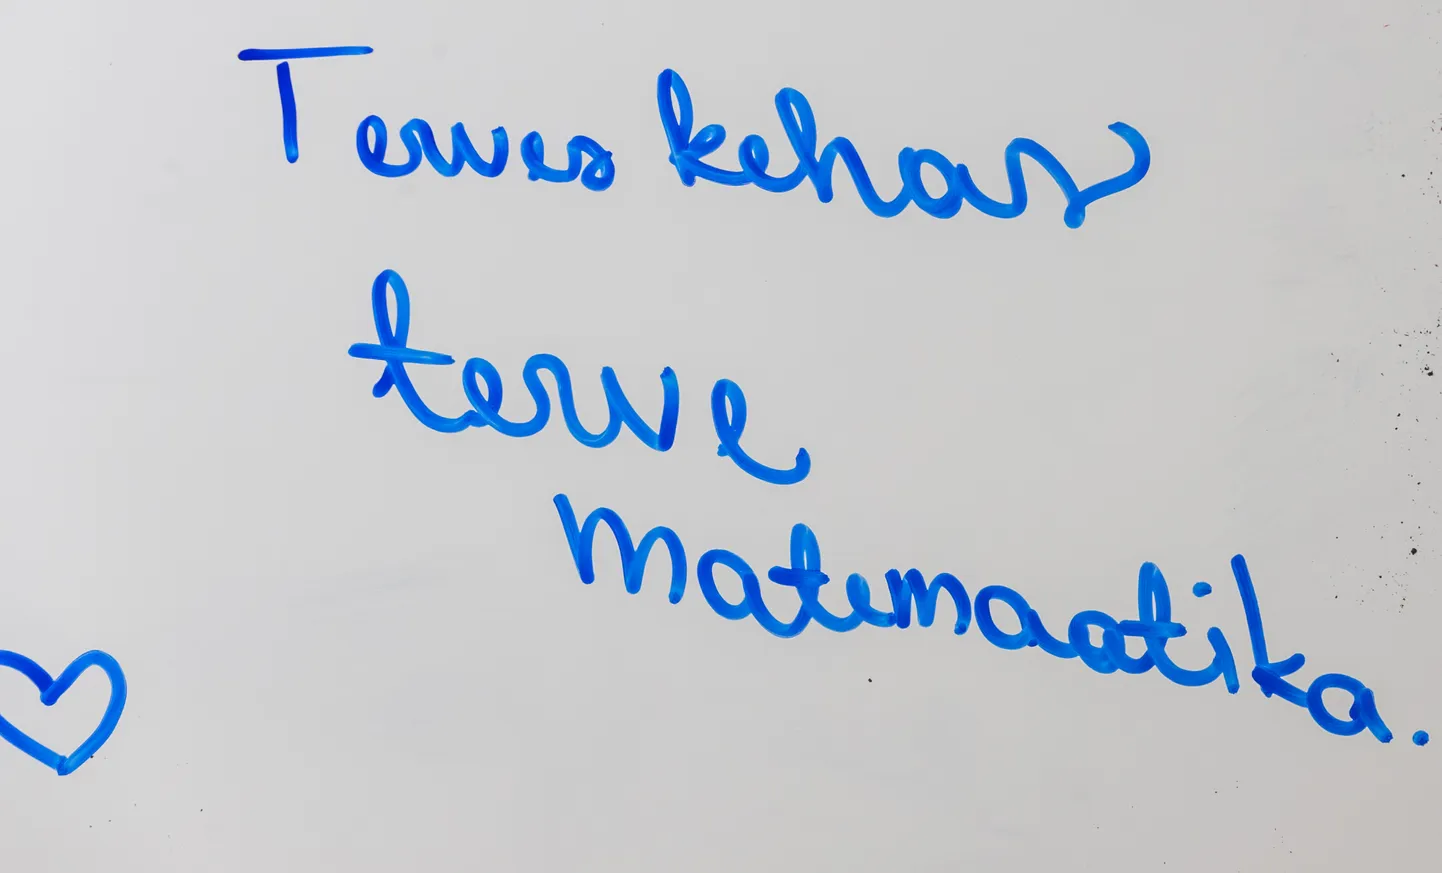 Terves kehas
terve
matemaatika.